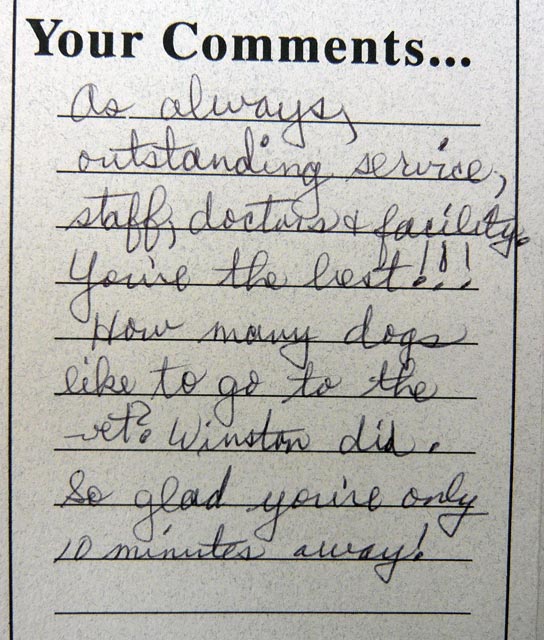 Your Comments...
As always,
outstanding service,
staff, doctors & facility.
You're the best!!!
How many dogs
like to go to the
vet? Winston did.
So glad you're only
10 minutes away!